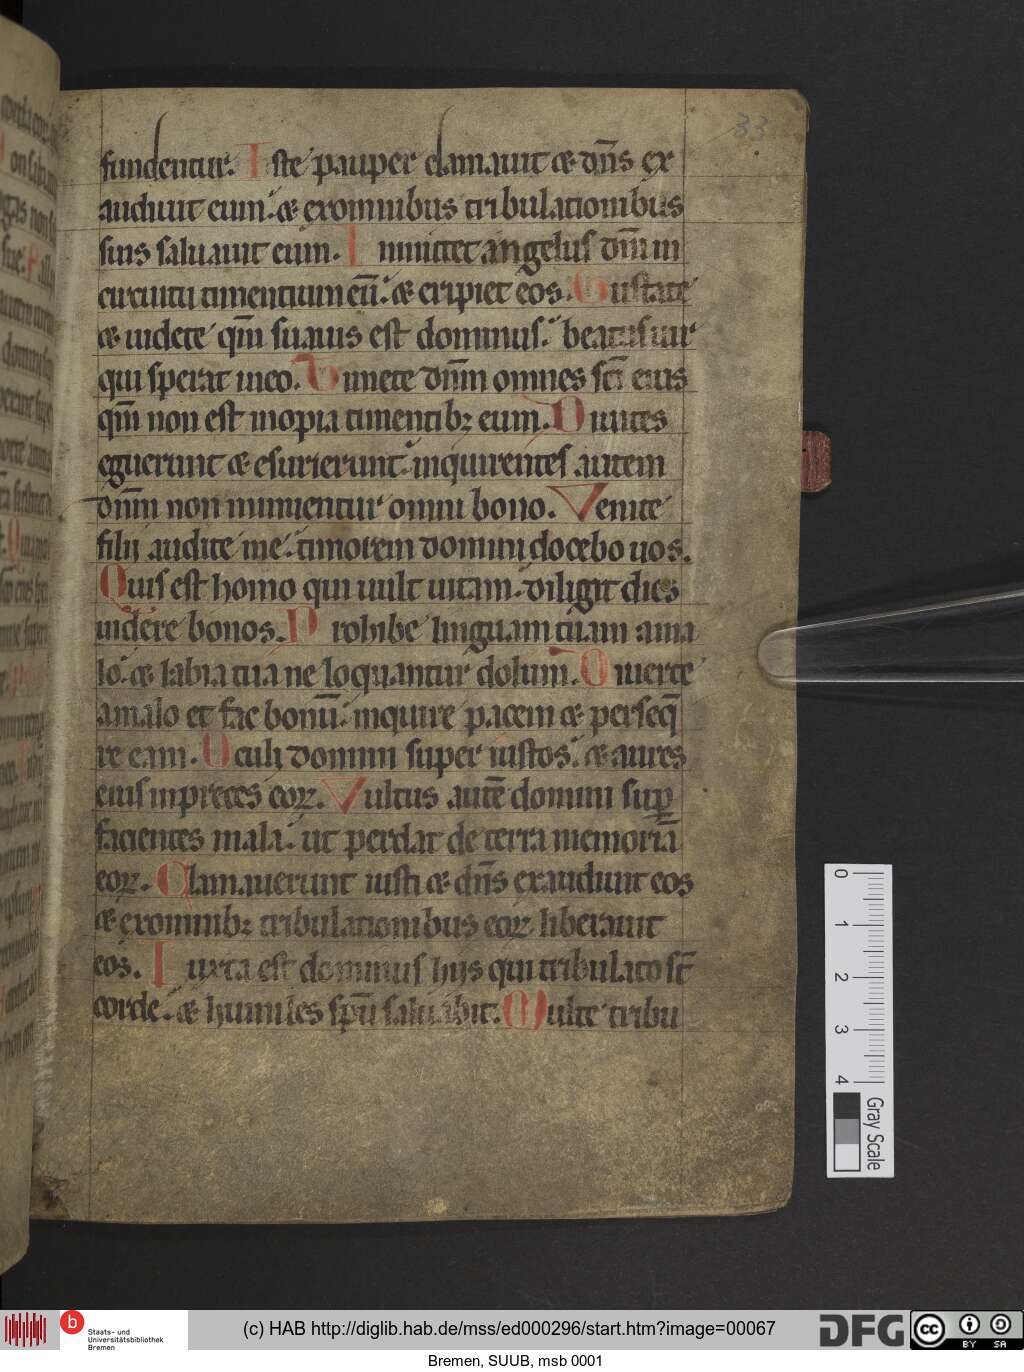 fundentur. Iste pauper clamauit & dn̄s ex
audiuit eum. & exomnibus tribulationibus
suis saluauit eum. Inmittet angelus dn̄i in
circuitu timentium eū. & eripiet eos. Gustate
& uidete qm̄ suauis est dominus. beatus uir
qui sperat ineo. Timete dn̄m omnes sc̄i eius
qm̄ non est inopia timentibꝫ eum. Diuites
eguerunt & esurierunt. inquirentes autem
dn̄m non minuentur omni bono. Venite
filij audite me. timorem domini docebo uos.
Quis est homo qui uult uitam. diligit dies
uidere bonos. Prohibe linguam tuam ama
lo. & labia tua ne loquantur dolum. Diuerte
amalo et fac bonū. inquire pacem & perseq̄
re eam. Oculi domini super iustos. & aures
eius inpreces eoꝝ. Vultus autē domini suꝑ
facientes mala. ut perdat de terra memoriā
eoꝝ. Clamauerunt iusti & dn̄s exaudiuit eos
& exomnibꝫ tribulationibus eoꝝ liberauit
eos. Iuxta est dominus hijs qui tribulato st̄
corde. & humiles spū saluabit. Multe tribu
33
0
1
2
3
4
Gray Scale
b
Staats- und
Universitätsbibliothek
Bremen
(c) HAB http://diglib.hab.de/mss/ed000296/start.htm?image=00067
DFG
cc
BY SA
Bremen, SUUB, msb 0001